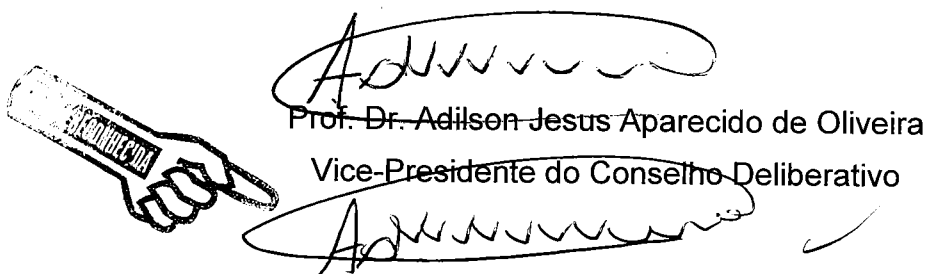 RECONHECIDA
Prof. Dr. Adilson Jesus Aparecido de Oliveira
Vice-Presidente do Conselho Deliberativo